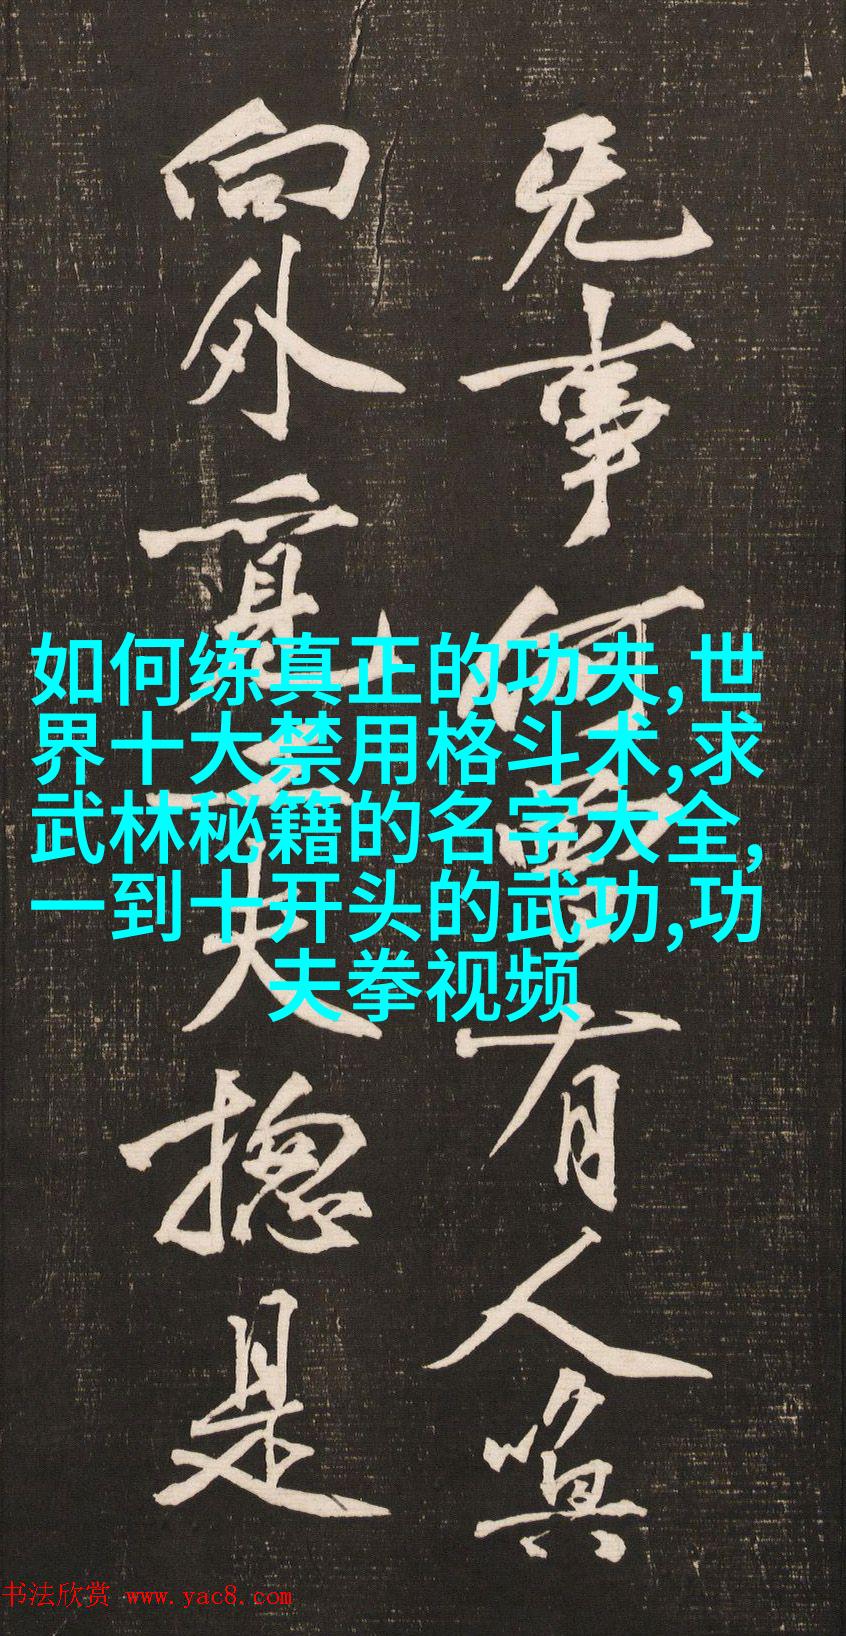 无事何有人嗔
向外夫捴是
如何练真正的功夫,世
界十大禁用格斗术,求
武林秘籍的名字大全,
一到十开头的武功,功
夫拳视频
书法欣赏 www.yac8.com